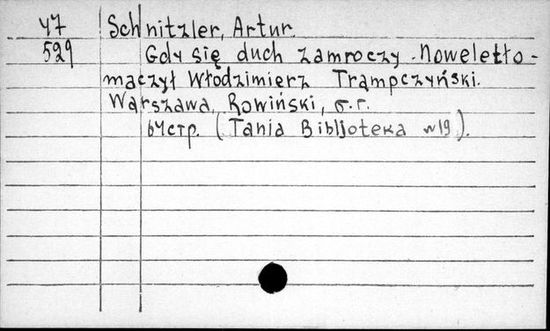 47 Schnitzler, Artur.
529 Gdy się duch zamroczy. Nowele tło-
maczył Włodzimierz Trampczyński.
Warszawa, Rowiński, б. г.
64 стр. (Tania Bibljoteka №19).